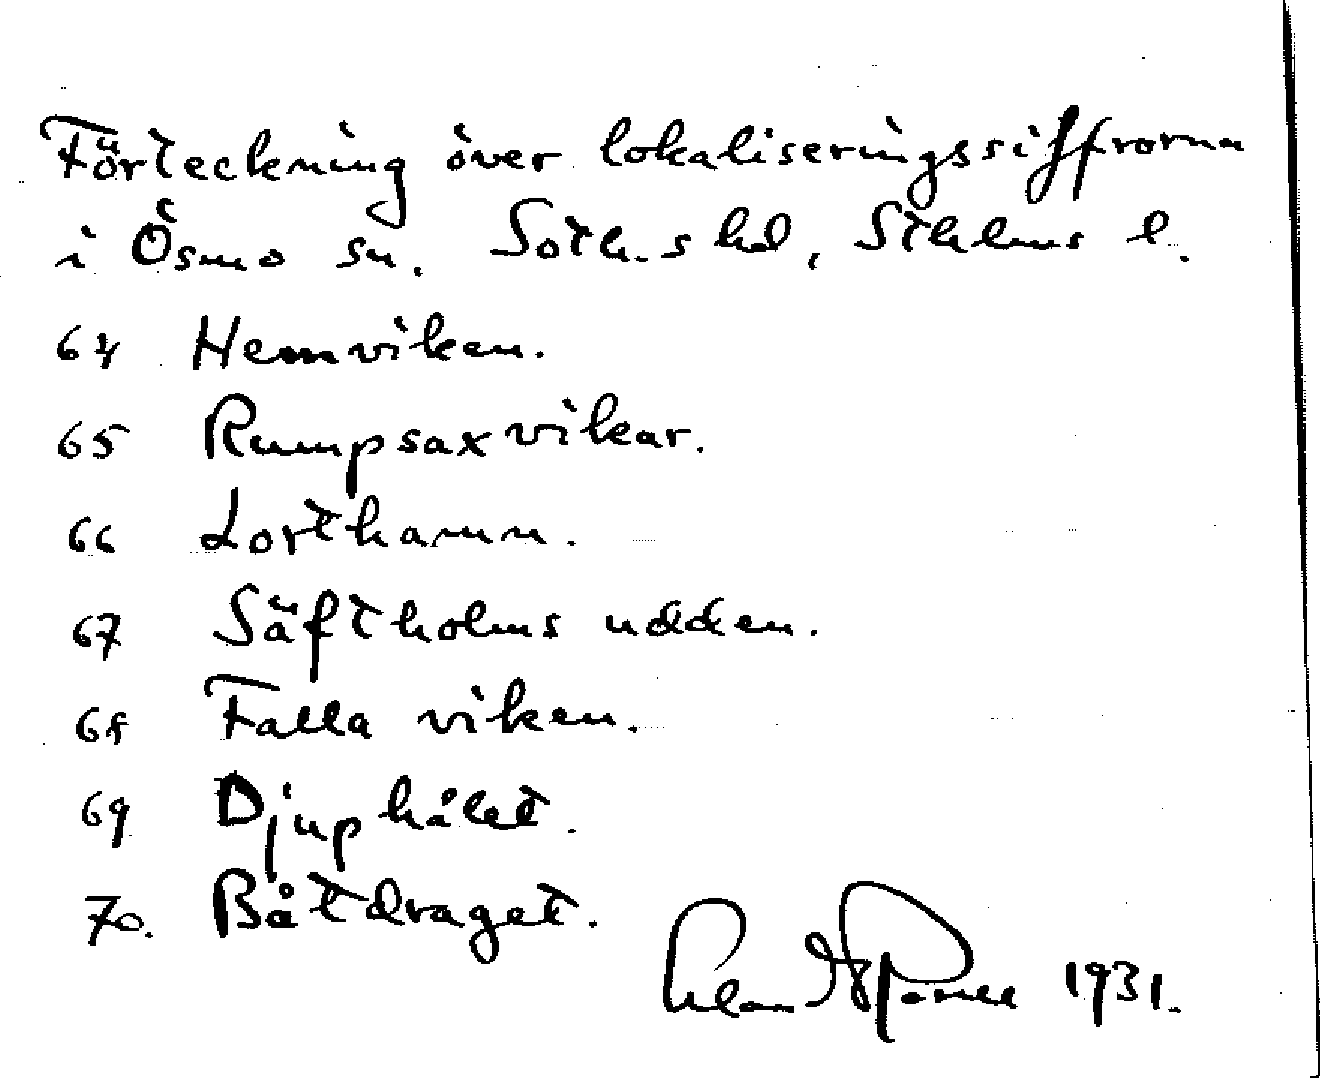 Förteckning över lokaliseringssiffrorna
i Ösmo sn. Soth.s hd, Sthlms l.
64 Hemviken.
65 Rumpsaxvikar.
66 Lorthamn.
67 Säftholms udden.
68 Falla viken.
69 Djuphålet.
70. Båtdraget.
1931.